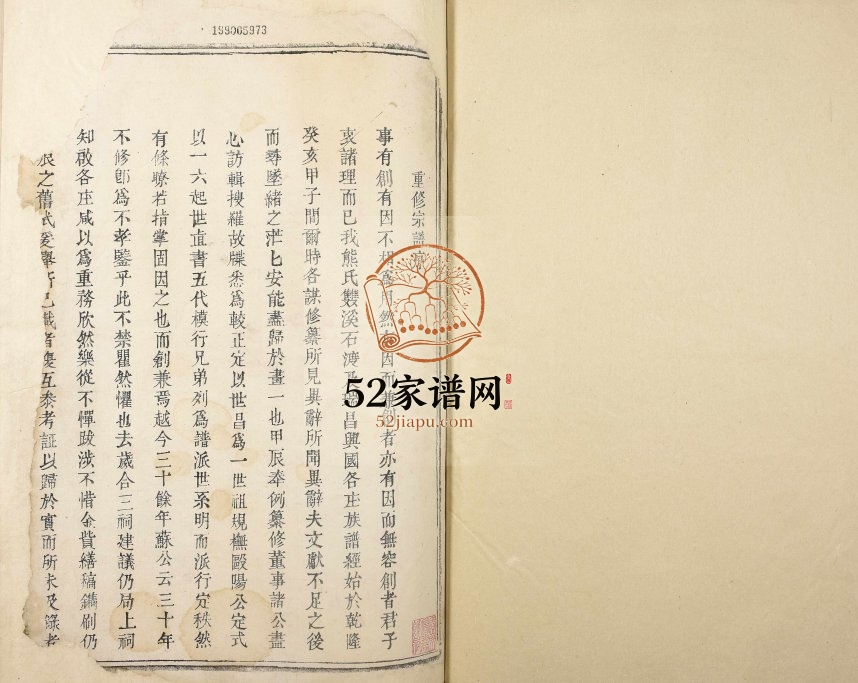 199065973
重修宗譜序
事有創有因不相為用然有因而兼創者亦有因而無容創者君子
衷諸理而已我熊氏雙溪石渡及瑞昌興國各庄族譜經始於乾隆
癸亥甲子間爾時各謀修纂所見異辭所聞異辭夫文獻不足之後
而尋墜緒之茫匕安能盡歸於畫一也甲辰奉例纂修董事諸公盡
心訪輯搜羅故牒悉為較正定以世昌為一世祖規橅毆陽公定式
以一六起世直書五代模行兄弟列為譜派世系明而派行定秩然
有條瞭若指掌固因之也而創兼焉越今三十餘年蘇公云三十年
不修卽為不孝鑒乎此不禁瞿然懼也去歲合三祠建議仍局上祠
知啟各庄咸以為重務欣然樂從不憚跋涉不惜金貲繕稿鐫刷仍
之舊式爰舉所已載者復互叅考証以歸於實而所未及錄者
52家谱网
52jiapu.com